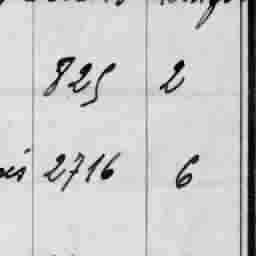 825 2
2716 6